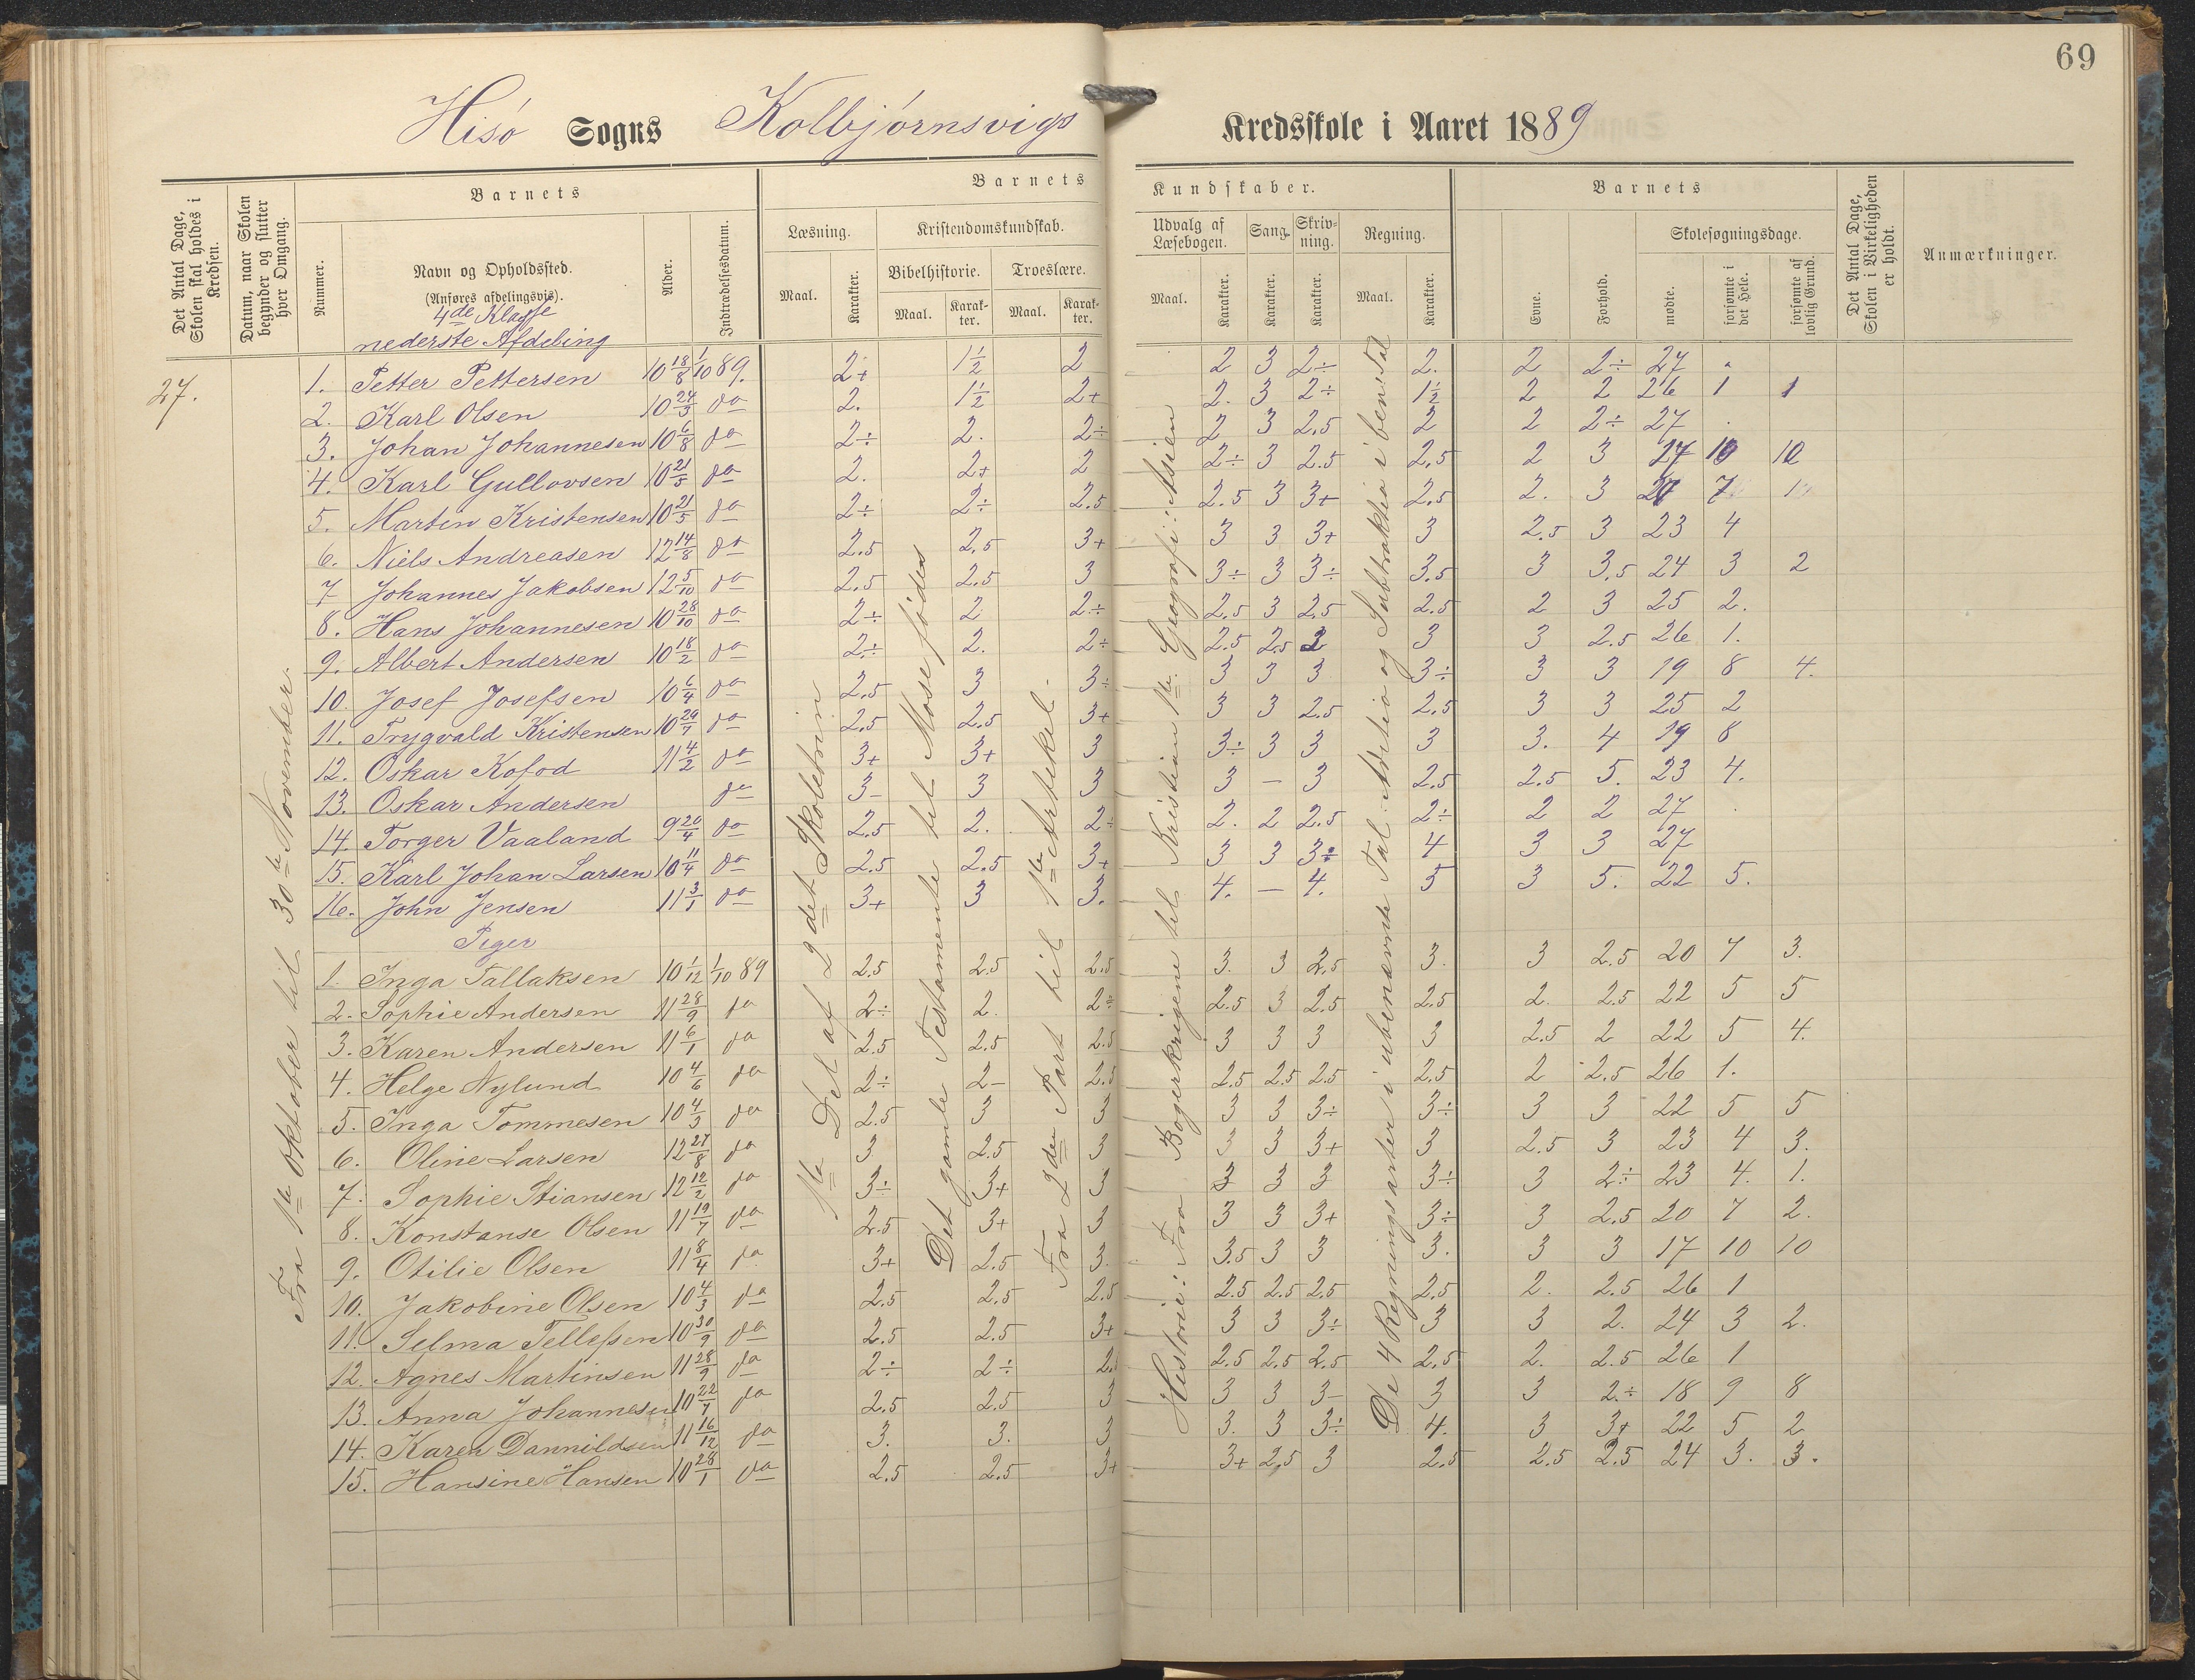 69
Hisö Sogns Kolbjörnsvigs Kredsskole i Aaret 1889
Det Antal Dage, Skolen skal holdes i Kredsen.
Datum, naar Skolen begynder og slutter hver Omgang.
Barnets
Nummer.
Navn og Opholdssted.
(Anføres afdelingsvis).
4de Klasse
nederste Afdeling
Alder.
Indtrædelsesdatum.
Barnets Kundskaber.
Læsning.
Maal.
Karakter.
Kristendomskundskab.
Bibelhistorie.
Maal.
Karakter.
Troeslære.
Maal.
Karakter.
Udvalg af Læsebogen.
Maal.
Karakter.
Sang.
Karakter.
Skrivning.
Karakter.
Regning.
Maal.
Karakter.
Barnets
Evne.
Forhold.
Skolesøgningsdage.
mødte.
forsømte i det Hele.
forsømte af lovlig Grund.
Det Antal Dage, Skolen i Virkeligheden er holdt.
Anmærkninger.
27.
Fra 1ste Oktober til 30te November.
1ste Del af 2det Skoletrin
Det gamle Testamente til Mose fødes
Fra 2den Part til 1ste Artikel.
Historie: Fra Bogerkrigene til Kristian 1ste. Geografi: Asien
De 4 Regningsarter i ubenævnte Tal. Addition og Subtraktion i ben. Tal
1. Petter Pettersen 10 18/8 1/10 89. 2+ 1½ 2 2 3 2÷ 2. 2 2÷ 27 .
2. Karl Olsen 10 24/5 do 2. 1½ 2+ 2. 3 2÷ 1½ 2 2 26 1 1
3. Johan Johannesen 10 6/8 do 2÷ 2. 2÷ 2 3 2.5 2 2 2÷ 27 .
4. Karl Gullovsen 10 21/5 do 2. 2+ 2 2÷ 3 2.5 2.5 2 3 10
5. Martin Kristensen 10 21/5 do 2÷ 2÷ 2.5 2.5 3 3+ 2.5 2. 3 7
6. Niels Andreasen 12 14/8 do 2.5 2.5 3+ 3 3 3+ 3 2.5 3 23 4
7 Johannes Jakobsen 12 5/10 do 2.5 2.5 3 3÷ 3 3÷ 3.5 3 3.5 24 3 2
8. Hans Johannesen 10 28/10 do 2÷ 2 2÷ 2.5 3 2.5 2.5 2 3 25 2.
9. Albert Andersen 10 18/2 do 2÷ 2. 2÷ 2.5 2.5 3 3 2.5 26 1.
10. Josef Josefsen 10 6/4 do 2.5 3 3÷ 3 3 3 3÷ 3 3 19 8 4.
11. Trygvald Kristensen 10 29/7 do 2.5 2.5 3+ 3 3 2.5 2.5 3 3 25 2
12. Oskar Kofod 11 4/2 do 3+ 3+ 3 3÷ 3 3 3 3. 4 19 8
13. Oskar Andersen do 3- 3 3 3 — 3 2.5 2.5 5. 23 4.
14. Torger Vaaland 9 20/4 do 2.5 2. 2÷ 2. 2 2.5 2÷ 2 2 27 .
15. Karl Johan Larsen 10 11/4 do 2.5 2.5 3+ 3 3 3÷ 4 3 3 27
16. John Jensen 11 3/1 do 3+ 3 3. 4. — 4. 5 3 5. 22 5.
Piger
1. Inga Tallaksen 10 1/12 1/10 89 2.5 2.5 2.5 3. 3 2.5 3. 3 2.5 20 7 3.
2. Sophie Andersen 11 28/9 do 2÷ 2. 2÷ 2.5 3 2.5 2.5 2. 2.5 22 5 5
3. Karen Andersen 11 6/1 do 2.5 2.5 2.5 3 3 3 3 2.5 2 22 5 4.
4. Helge Nylund 10 4/6 do 2÷ 2- 2.5 2.5 2.5 2.5 2.5 2 2.5 26 1.
5. Inga Tommesen 10 4/3 do 2.5 3 3 3 3 3÷ 3÷ 3 3 22 5 5
6. Oline Larsen 12 27/8 do 3 2.5 3 3 3 3+ 3 2.5 3 23 4 3.
7. Sophie Stiansen 12 12/2 do 3÷ 3+ 3 3 3 3 3÷ 3 2÷ 23 4. 1.
8. Konstanse Olsen 11 19/7 do 2.5 3+ 3 3 3 3+ 3÷ 3 2.5 20 7 2.
9. Otilie Olsen 11 8/4 do 3+ 2.5 3. 3.5 3 3 3. 3 3 17 10 10
10. Jakobine Olsen 10 4/3 do 2.5 2.5 2.5 2.5 2.5 2.5 2.5 2. 2.5 26 1
11. Selma Tellefsen 10 30/9 do 2.5 2.5 3+ 3 3 3÷ 3 3 2. 24 3 2.
12. Agnes Martinsen 11 28/9 do 2÷ 2÷ 2.5 2.5 2.5 2.5 2. 2.5 26 1
13. Anna Johannesen 10 22/7 do 2.5 2.5 3 3 3 3- 3 3 2÷ 18 9 8
14. Karen Dannildsen 11 16/12 do 3. 3. 3 3. 3 3÷ 4. 3 3+ 22 5 2
15. Hansine Hansen 10 28/1 do 2.5 2.5 3+ 3+ 2.5 3 2.5 2.5 2.5 24 3. 3.